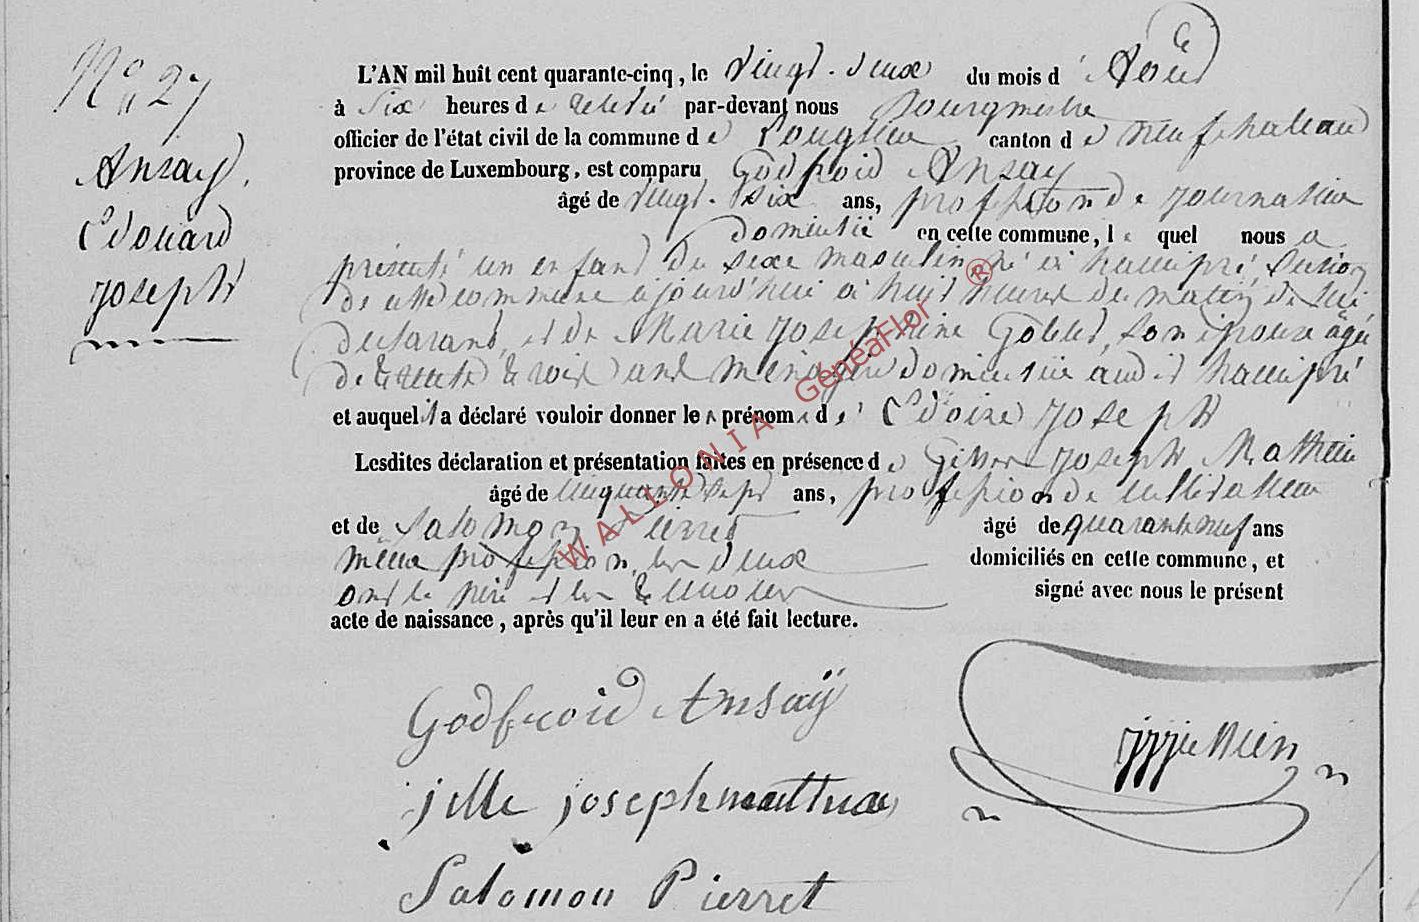 No 27
Ansay,
Edouard
Joseph
L'AN mil huit cent quarante-cinq, le vingt-deux du mois d'Août
à six heures de relevé par-devant nous Bourgmestre
officier de l'état civil de la commune de canton de neufchateau
province de Luxembourg, est comparu Godfroid Ansay
âgé de vingt-six ans, profession de journalier
domicilié en cette commune, le quel nous a
présenté un enfant du sexe masculin né à section
de cette commune ajourd'hui à huit heures du matin de lui
declarant, et de Marie Josephine son épouse âgée
de trente trois ans ménagère domiciliée audit
et auquel il a déclaré vouloir donner les prénoms de Edoird Joseph
Lesdites déclaration et présentation faites en présence de Joseph Mathieu
âgé de cinquante sept ans, profession de cultivateur
et de Salomon Pierret âgé de quarante neuf ans
même profession, les deux domiciliés en cette commune, et
ont le père et les témoins signé avec nous le présent
acte de naissance, après qu'il leur en a été fait lecture.
Godfroid Ansaÿ
jille joseph mathieu
Salomon Pierret
WALLONIA GénéaFlor ®